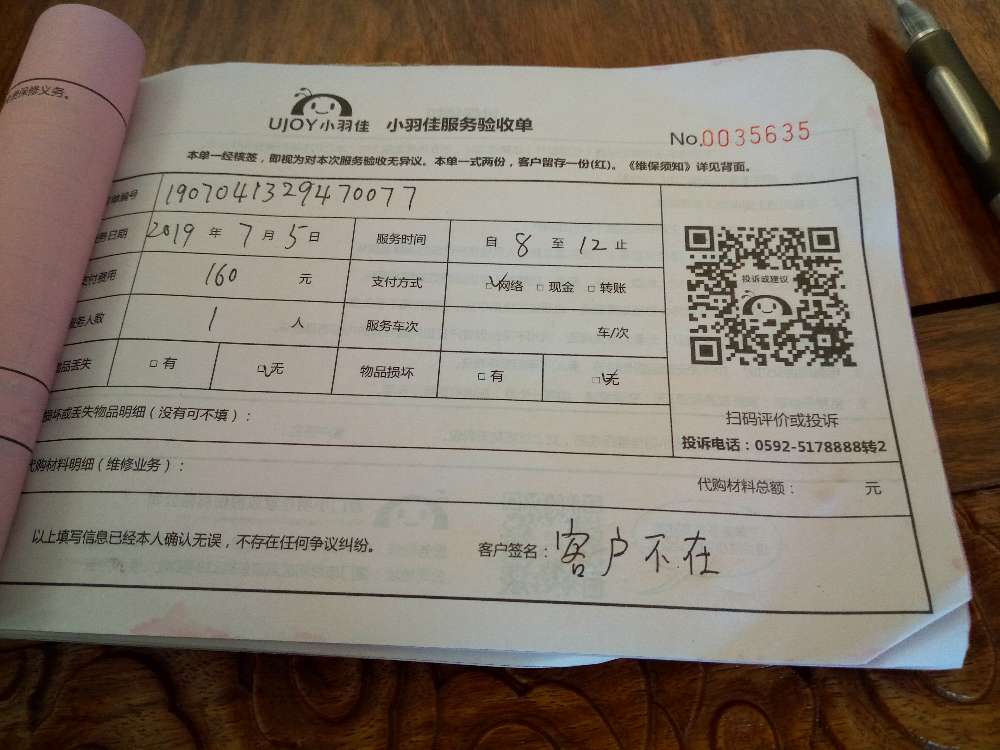 保修义务。
UJOY小羽佳 小羽佳服务验收单
No.0035635
本单一经核签，即视为对本次服务验收无异议。本单一式两份，客户留存一份(红)。《维保须知》详见背面。
单编号 1907041329470077
务日期 2019 年 7 月 5 日 服务时间 自 8 至 12 止
支付费用 160 元 支付方式 ☑网络 □现金 □转账
服务人数 1 人 服务车次 车/次
物品丢失 □有 ☑无 物品损坏 □有 ☑无
投诉或建议
扫码评价或投诉
投诉电话：0592-5178888转2
损坏或丢失物品明细（没有可不填）：
代购材料明细（维修业务）：
代购材料总额： 元
以上填写信息已经本人确认无误，不存在任何争议纠纷。 客户签名：客户不在